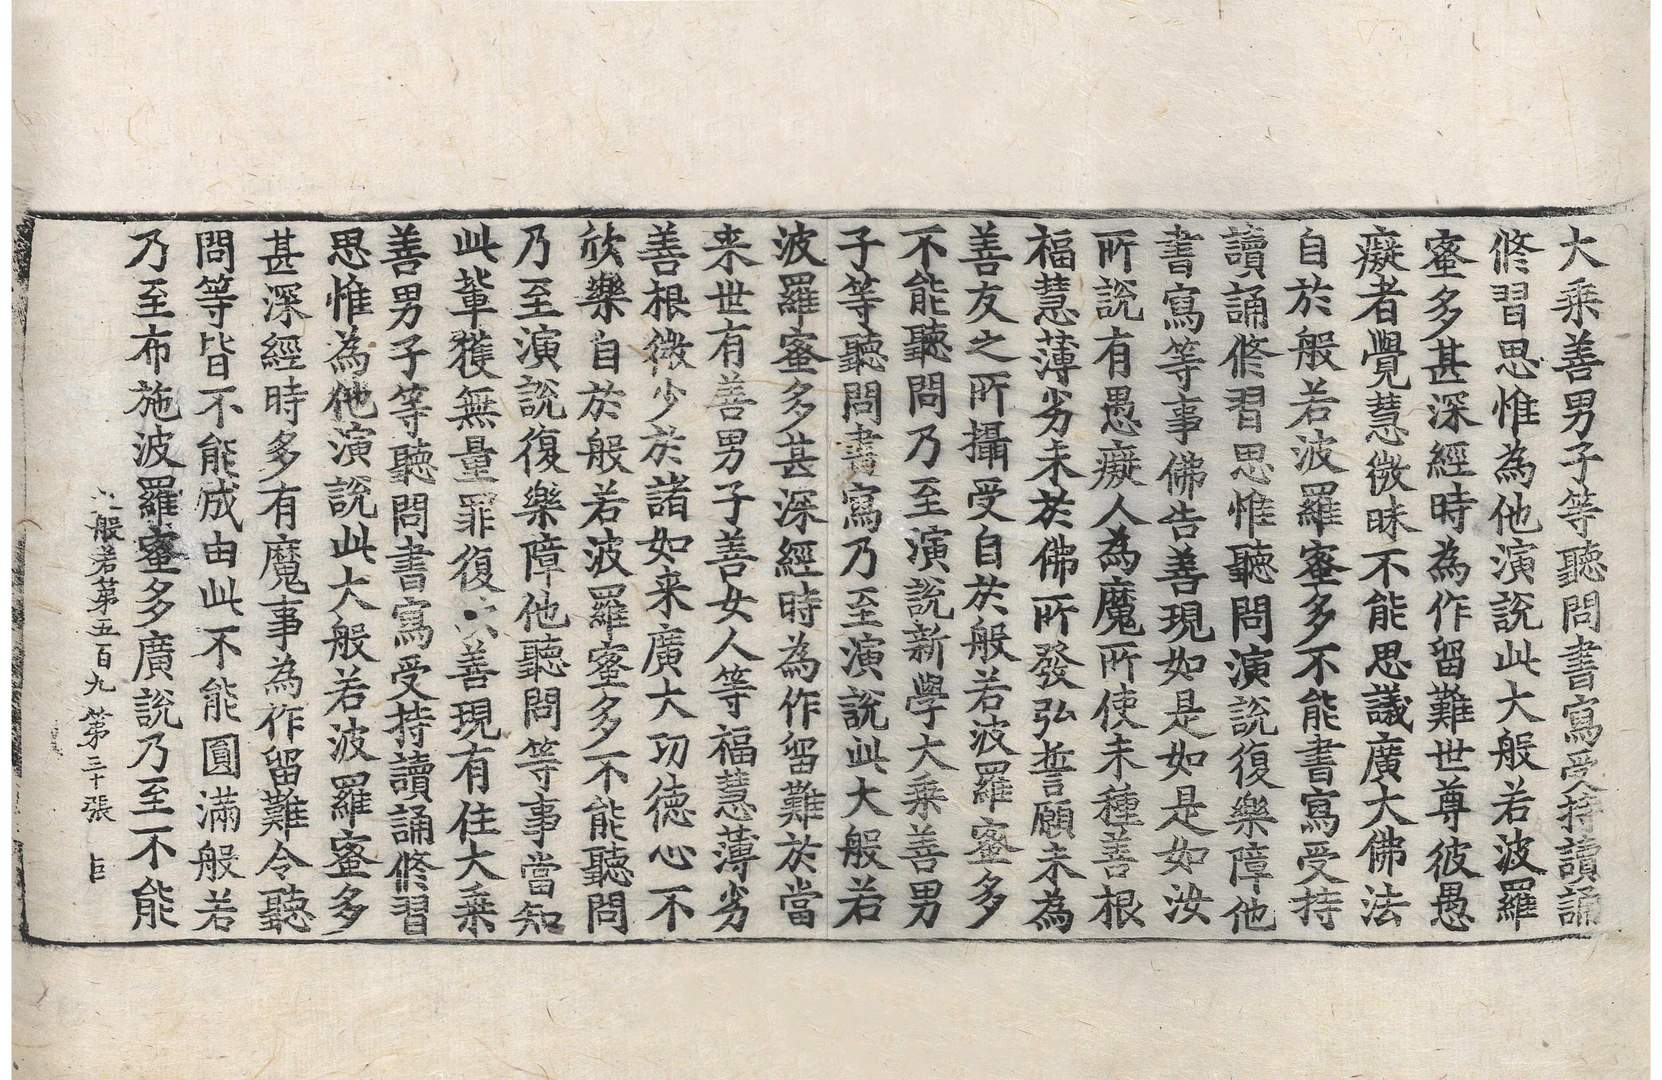 大乘善男子等聽問書寫受持讀誦
修習思惟為他演說此大般若波羅
蜜多甚深經時為作留難世尊彼愚
癡者覺慧微昧不能思議廣大佛法
自於般若波羅蜜多不能書寫受持
讀誦修習思惟聽問演說復樂障他
書寫等事佛告善現如是如是如汝
所說有愚癡人為魔所使未種善根
福慧薄劣未於佛所發弘誓願未為
善友之所攝受自於般若波羅蜜多
不能聽問乃至演說新學大乘善男
子等聽問書寫乃至演說此大般若
波羅蜜多甚深經時為作留難於當
来世有善男子善女人等福慧薄劣
善根微少於諸如来廣大功德心不
欣樂自於般若波羅蜜多不能聽問
乃至演說復樂障他聽問等事當知
此輩獲無量罪復次善現有住大乘
善男子等聽問書寫受持讀誦修習
思惟為他演說此大般若波羅蜜多
甚深經時多有魔事為作留難令聽
問等皆不能成由此不能圓滿般若
乃至布施波羅蜜多廣說乃至不能
般若第五百九 第三十張 巨